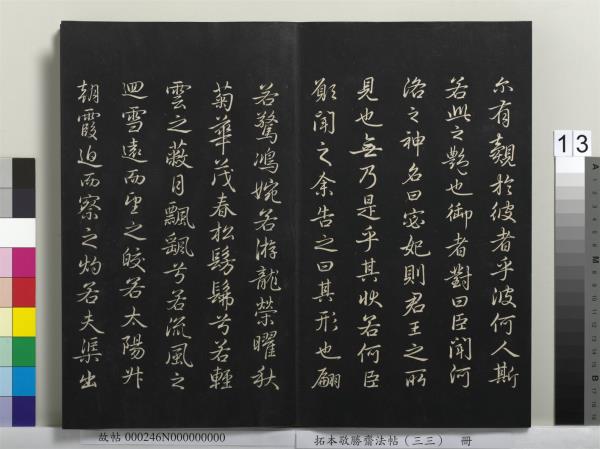 尓有覿於彼者乎彼何人斯
若此之艷也御者對曰臣聞河
洛之神名曰宓妃則君王之所
見也無乃是乎其狀若何臣
願聞之余告之曰其形也翩
若驚鴻婉若游龍榮曜秋
菊華茂春松髣髴兮若輕
雲之蔽月飄颻兮若流風之
迴雪遠而望之皎若太陽升
朝霞迫而察之灼若夫渠出
13
A
M
B
故帖 000246N000000000
拓本敬勝齋法帖(三三) 冊